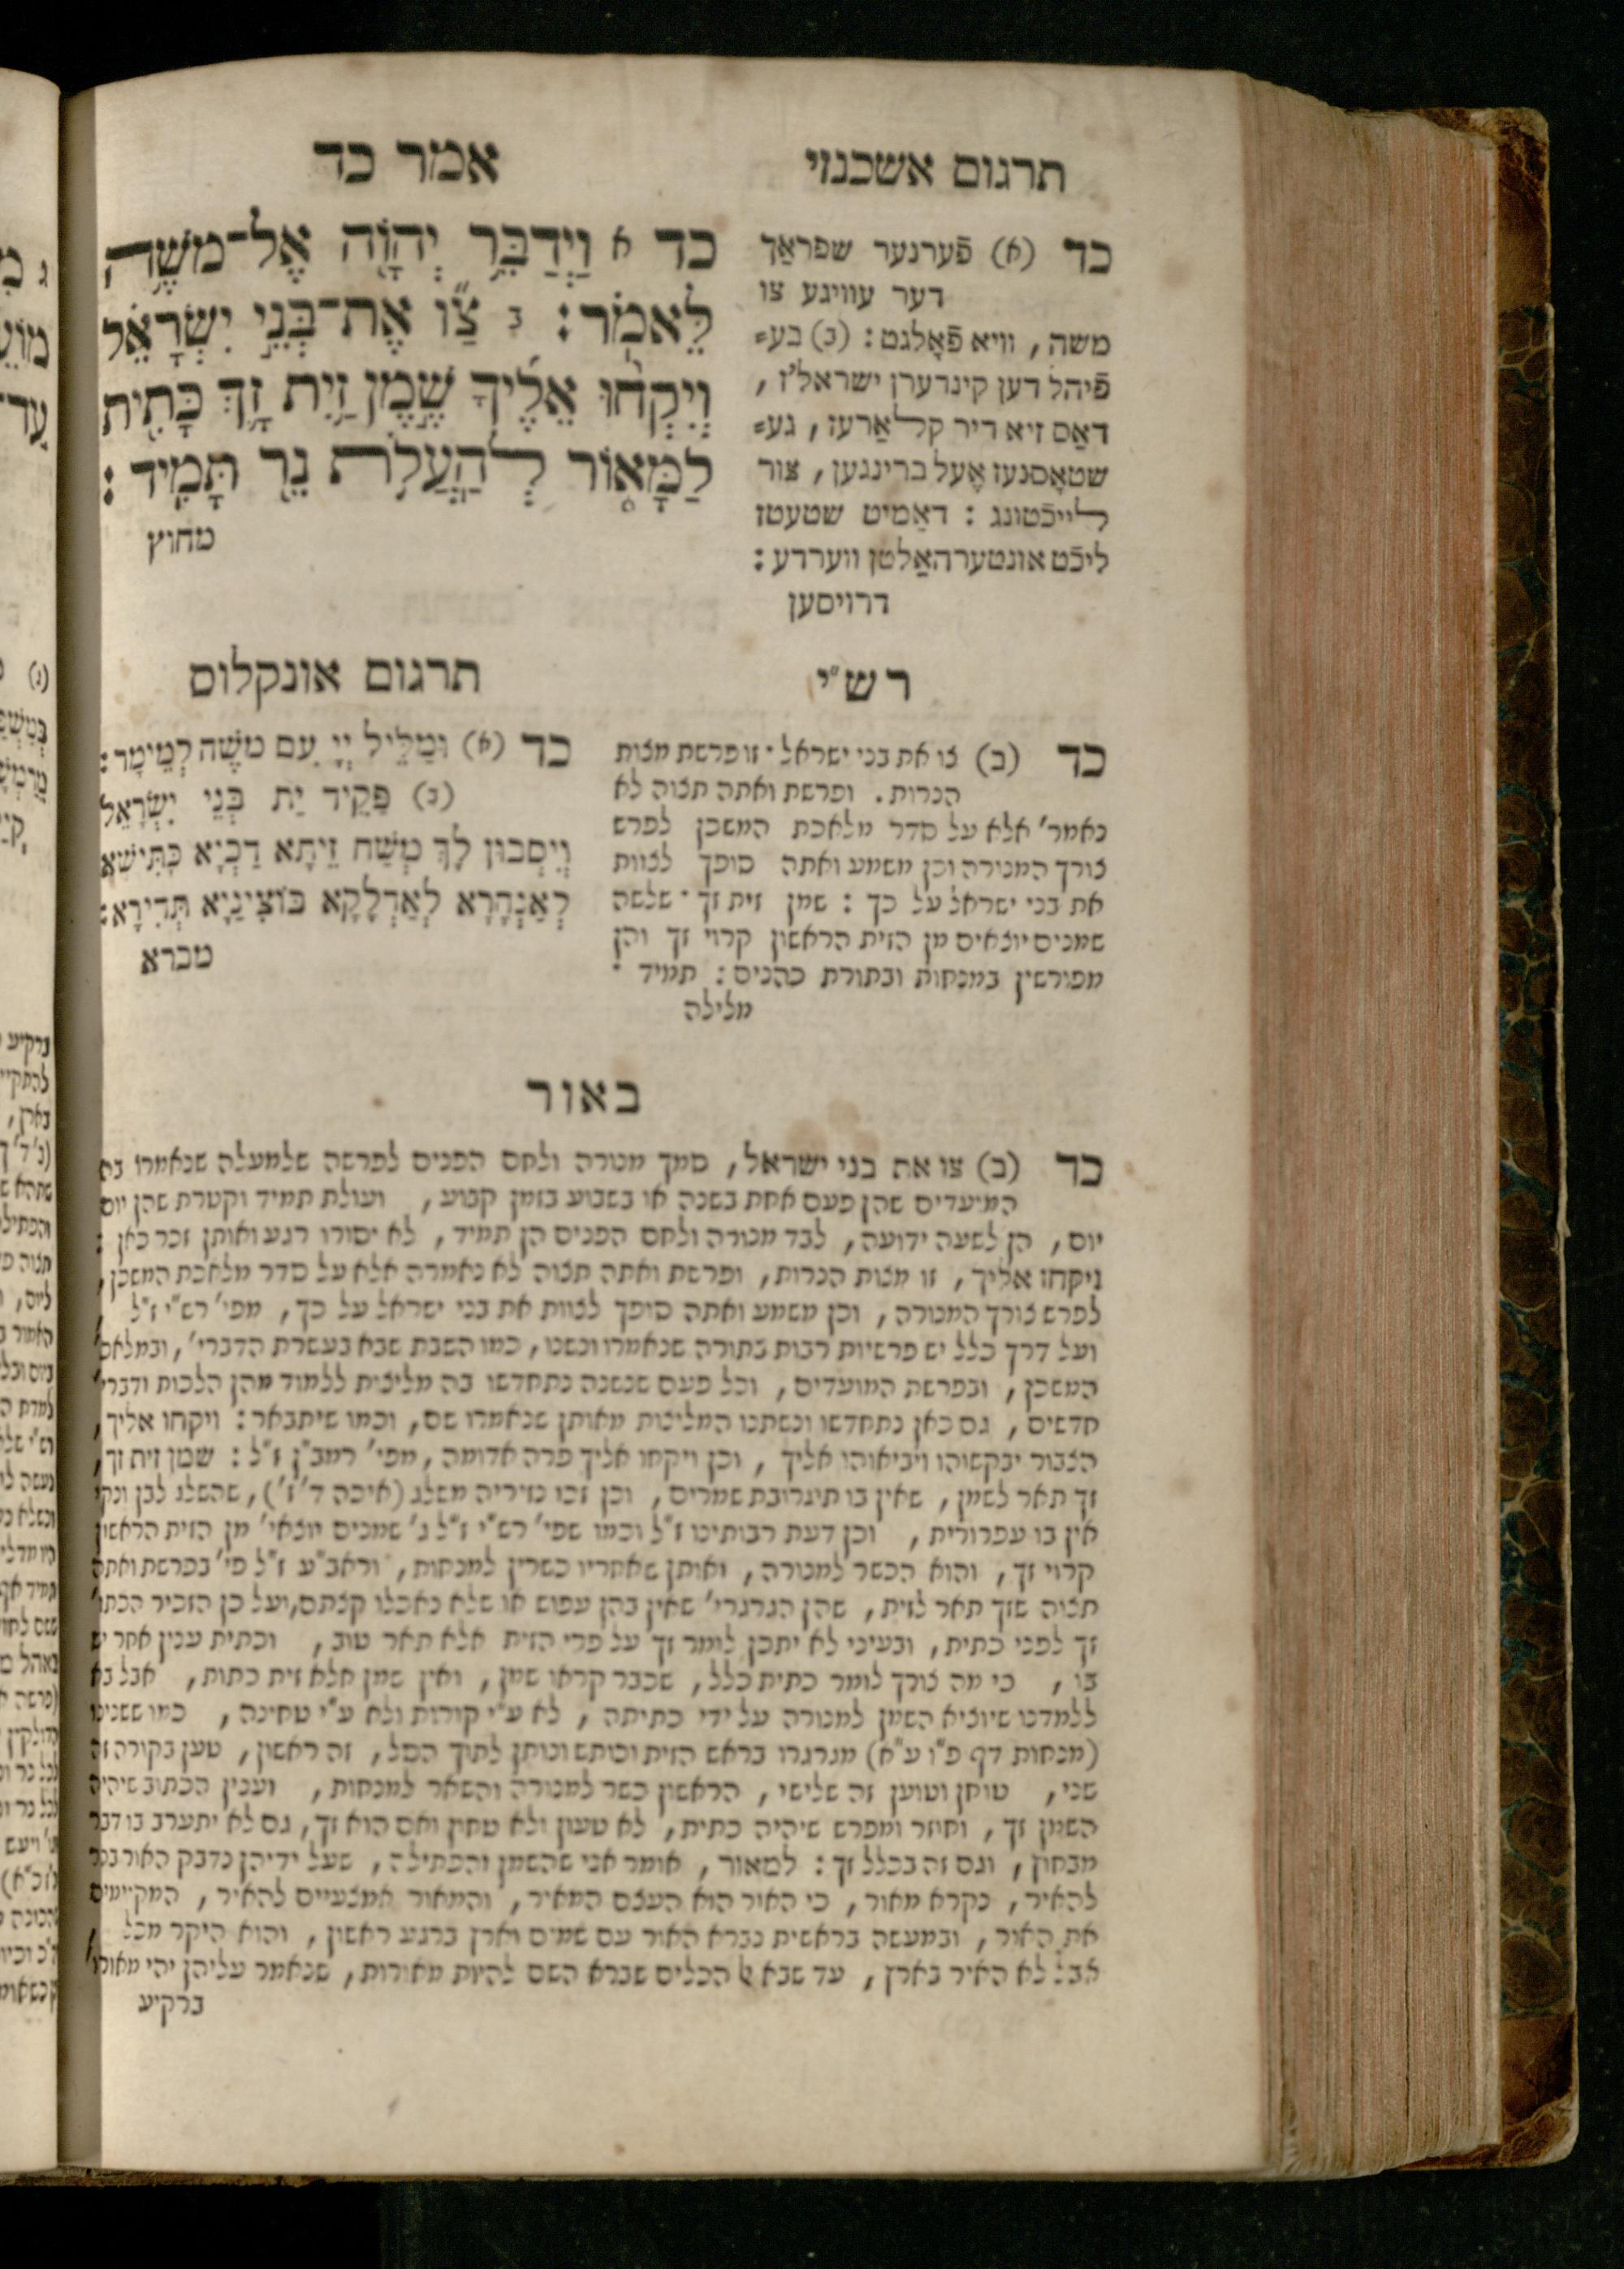 אמר כד
תרגום אשכנזי
כד א וַיְדַבֵּ֥ר יְהוָ֖ה אֶל־מֹשֶׁ֥ה
לֵּאמֹֽר׃ ב צַ֞ו אֶת־בְּנֵ֣י יִשְׂרָאֵ֗ל
וְיִקְח֨וּ אֵלֶ֜יךָ שֶׁ֣מֶן זַ֥יִת זָ֛ךְ כָּתִ֖ית
לַמָּא֑וֹר לְהַעֲלֹ֥ת נֵ֖ר תָּמִֽיד׃
מחוץ
כד (א) פֿערנער שפראַך
דער עוויגע צו
משה, וויא פֿאָלגט: (ב) בע=
פֿיהל דען קינדערן ישראל'ז,
דאַס זיא דיר קלאַרעז, גע=
שטאָסנעז אָעל ברינגען, צור
לייכֿטונג: דאַמיט שטעטז
ליכֿט אונטערהאַלטן ווערדע:
דרויסען
רש"י
כד (ב) צו את בני ישראל. זו פרשת מצות
הנרות. ופרשת ואתה תצוה לא
נאמר' אלא על סדר מלאכת המשכן לפרש
צורך המנורה וכן משמע ואתה סופך לצוות
את בני ישראל על כך: שמן זית זך. שלשה
שמנים יוצאים מן הזית הראשון קרוי זך והן
מפורשין במנחות ובתורת כהנים: תמיד.
מלילה
תרגום אונקלוס
כד (א) וּמַלֵּיל יְיָ עִם מֹשֶׁה לְמֵימָר:
(ב) פַּקֵּיד יַת בְּנֵי יִשְׂרָאֵל
וְיִסְבוּן לָךְ מְשַׁח זֵיתָא דַכְיָא כָּתִישָׁא
לְאַנְהָרָא לְאַדְלָקָא בּוֹצִינַיָּא תְּדִירָא:
מברא
באור
כד (ב) צו את בני ישראל, סמך מנורה ולחם הפנים לפרשה שלמעלה שנאמרו בה
המועדים שהן פעם אחת בשנה או בשבוע בזמן קבוע, ועולת תמיד וקטרת שהן יום
יום, הן לשעה ידועה, לבד מנורה ולחם הפנים הן תמיד, לא יסורו רגע ואותן זכר כאן:
ויקחו אליך, זו מצות הנרות, ופרשת ואתה תצוה לא נאמרה אלא על סדר מלאכת המשכן,
לפרש צורך המנורה, וכן משמע ואתה סופך לצוות את בני ישראל על כך, מפי' רש"י ז"ל,
ועל דרך כלל יש פרשיות רבות בתורה שנאמרו ונשנו, כמו השבת שבא בעשרת הדברי', ובמלאכ'
המשכן, ובפרשת המועדים, וכל פעם שנשנה נתחדשו בה מליצות ללמוד מהן הלכות ודברי'
חדשים, גם כאן נתחדשו ונשתנו המליצות מאותן שנאמרו שם, וכמו שיתבאר: ויקחו אליך,
הצבור יבקשוהו ויביאוהו אליך, וכן ויקחו אליך פרה אדומה, מפי' רמב"ן ז"ל: שמן זית זך,
זך תאר לשמן, שאין בו תערובת שמרים, וכן זכו נזיריה משלג (איכה ד' ז'), שהשלג לבן ונקי
אין בו עפרורית, וכן דעת רבותינו ז"ל וכמו שפי' רש"י ז"ל ג' שמנים יוצאי' מן הזית הראשון
קרוי זך, והוא הכשר למנורה, ואותן שאחריו כשרין למנחות, וראב"ע ז"ל פי' בפרשת ואתה
תצוה שזך תאר לזית, שהן הגרגרי' שאין בהן עפוש או שלא נאכלו קצתם, ועל כן הזכיר הכתו'
זך לפני כתית, ובעיני לא יתכן לומר זך על פרי הזית אלא תאר טוב, וכתית ענין אחר יש
בו, כי מה צורך לומר כתית כלל, שכבר קראו שמן, ואין שמן אלא זית כתות, אבל בא
ללמדנו שיוציא השמן למנורה על ידי כתיתה, לא ע"י קורות ולא ע"י טחינה, כמו ששנינו
(מנחות דף פ"ו ע"א) מגרגרו בראש הזית וכותש ונותן לתוך הסל, זה ראשון, טען בקורה זה
שני, טוחן וטוען זה שלישי, הראשון כשר למנורה והשאר למנחות, וענין הכתוב שיהיה
השמן זך, וחוזר ומפרש שיהיה כתית, לא טעון ולא טחון ואם הוא זך, גם לא יתערב בו דבר
מבחוץ, וגם זה בכלל זך: למאור, אומר אני שהשמן והפתילה, שעל ידיהן נדבק האור בנר
להאיר, נקרא מאור, כי האור הוא העצם המאיר, והמאור אמצעיים להאיר, המקיימים
את האור, ובמעשה בראשית נברא האור עם שמים וארץ ברגע ראשון, והוא היקר מכל,
אבל לא האיר בארץ, עד שבא הכלים שברא השם להיות מאורות, שנאמר עליהן יהי מאורו'
ברקיע